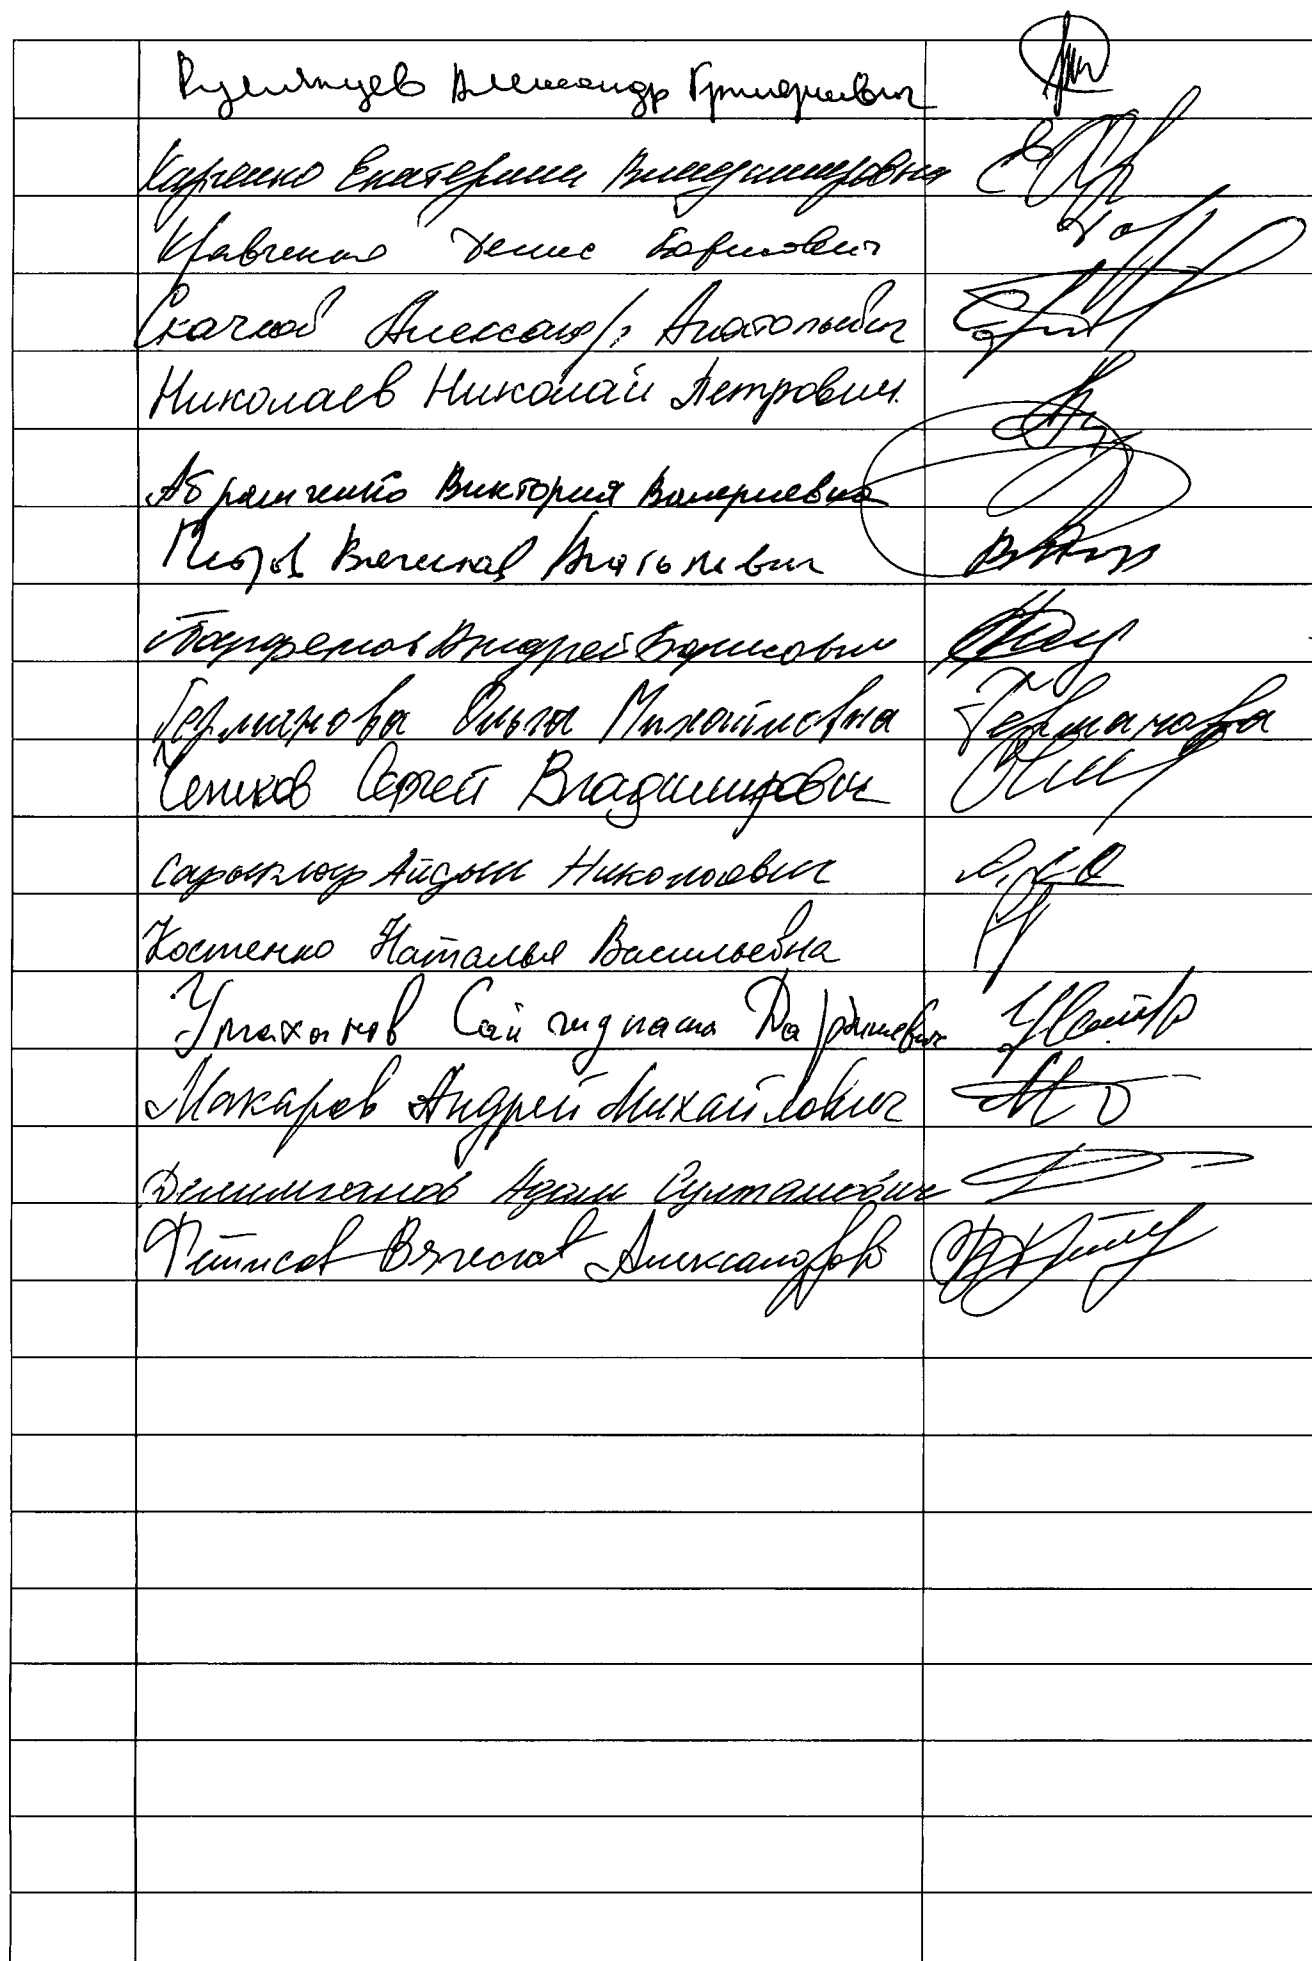 Румянцев Александр Григорьевич
Харченко Екатерина Владимировна
Кравченко Денис Борисович
Скачков Александр Анатольевич
Николаев Николай Петрович
Абрамченко Виктория Валериевна
Петров Вячеслав Анатольевич
Парфенов Андрей Борисович
Германова Ольга Михайловна Германова
Чепиков Сергей Владимирович
Сарыглар Айдын Николаевич
Костенко Наталья Васильевна
Умаханов Сайгидпаша Дарбишевич
Макаров Андрей Михайлович
Делимханов Адам Султанович
Фетисов Вячеслав Александров